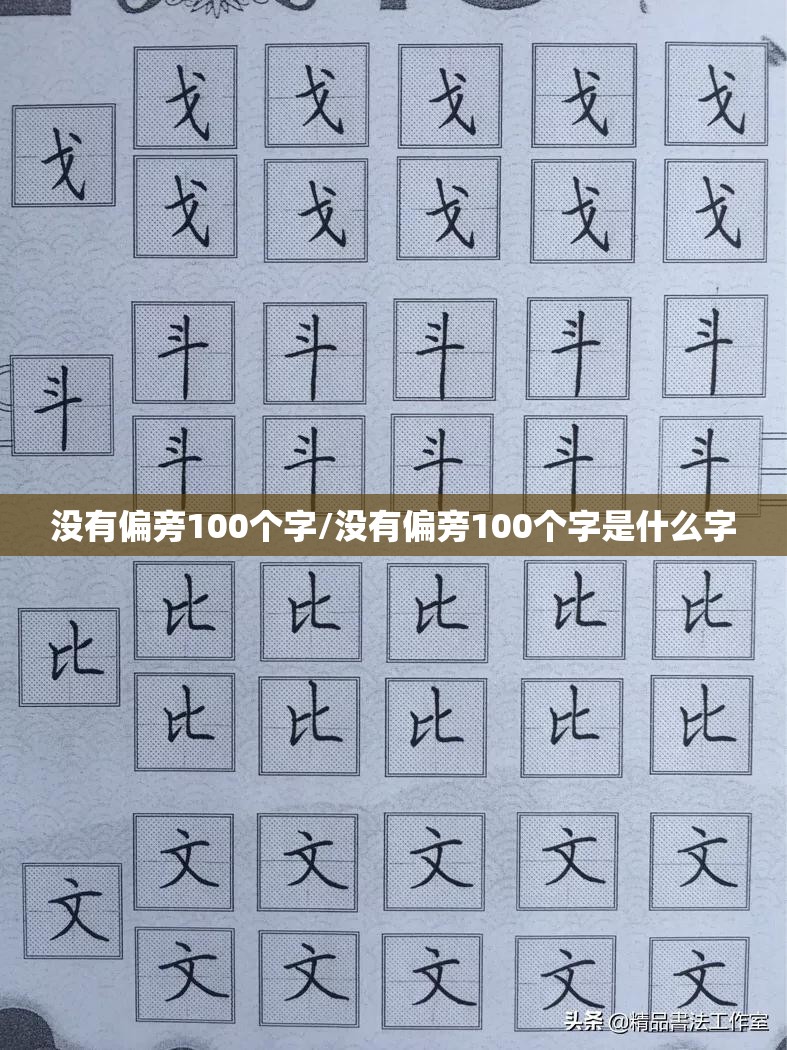 戈 戈 戈 戈 戈
戈
戈 戈 戈 戈 戈
斗 斗 斗 斗 斗
斗
斗 斗 斗 斗 斗
没有偏旁100个字/没有偏旁100个字是什么字
比 比 比 比 比
比
比 比 比 比 比
文 文 文 文 文
文
文 文 文 文 文
头条 @精品書法工作室